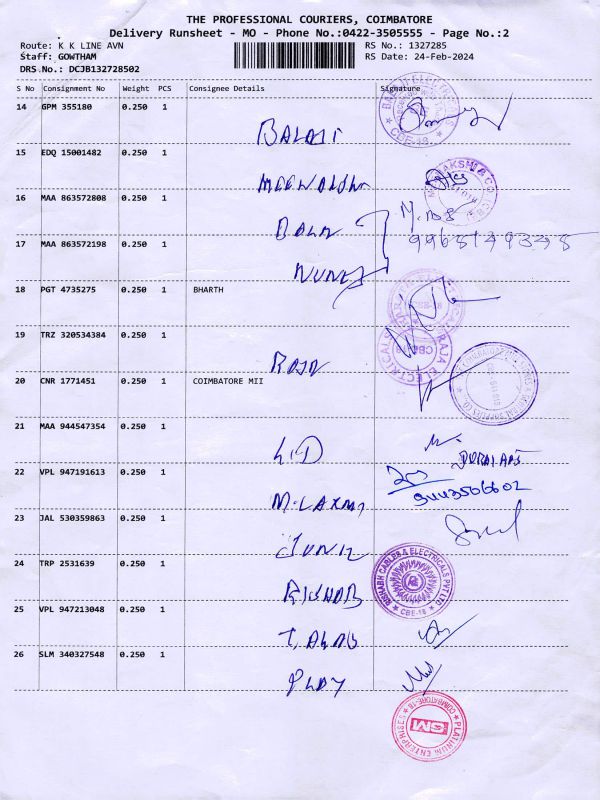 THE PROFESSIONAL COURIERS, COIMBATORE
Delivery Runsheet - MO - Phone No.:0422-3505555 - Page No.:2
Route: K K LINE AVN
RS No.: 1327285
Staff: GOWTHAM
RS Date: 24-Feb-2024
DRS.No.: DCJB132728502
S No Consignment No Weight PCS Consignee Details Signature
14 GPM 355180 0.250 1
BALAJI
15 EDQ 15001482 0.250 1
16 MAA 863572808 0.250 1
BALA
17 MAA 863572198 0.250 1
18 PGT 4735275 0.250 1 BHARTH
19 TRZ 320534384 0.250 1
RAJA
20 CNR 1771451 0.250 1 COIMBATORE MII
21 MAA 944547354 0.250 1
22 VPL 947191613 0.250 1
M.LAXMI
9443506602
23 JAL 530359863 0.250 1
24 TRP 2531639 0.250 1
RISHAB
RISHABH CABLES & ELECTRICALS PVT LTD
CBE-18
25 VPL 947213048 0.250 1
26 SLM 340327548 0.250 1
PLATINUM ENTERPRISES
COIMBATORE-18